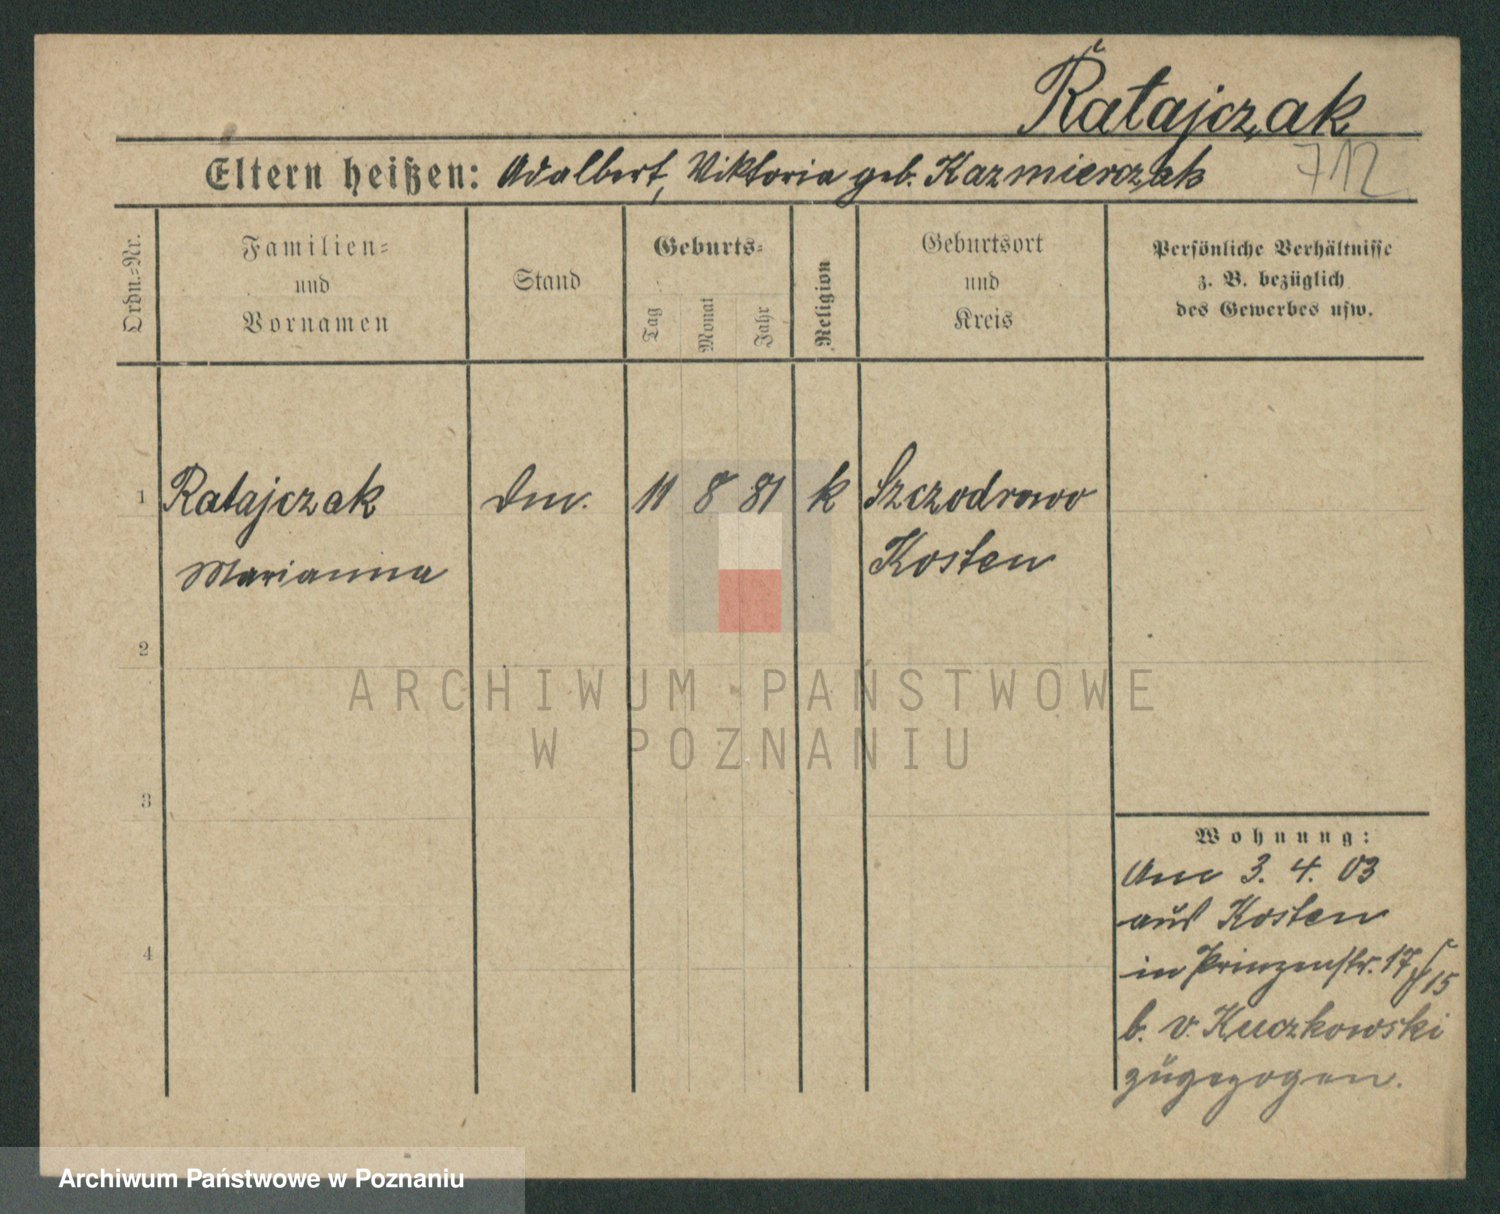 Ratajczak
Eltern heißen: Adalbert, Viktoria geb. Kazmierczak 712
Ordn.-Nr.
Familien-
und
Vornamen
Stand
Geburts-
Tag
Monat
Jahr
Religion
Geburtsort
und
Kreis
Persönliche Verhältnisse
z. B. bezüglich
des Gewerbes usw.
1 Ratajczak 11 8 81 k Szczodrowo
Marianna Kosten
2
ARCHIWUM PAŃSTWOWE
W POZNANIU
3
Wohnung:
Am 3. 4. 03
aus Kosten
4
in Prinzenstr. 17 15
b. v. Kuczkowski
zugezogen.
Archiwum Państwowe w Poznaniu